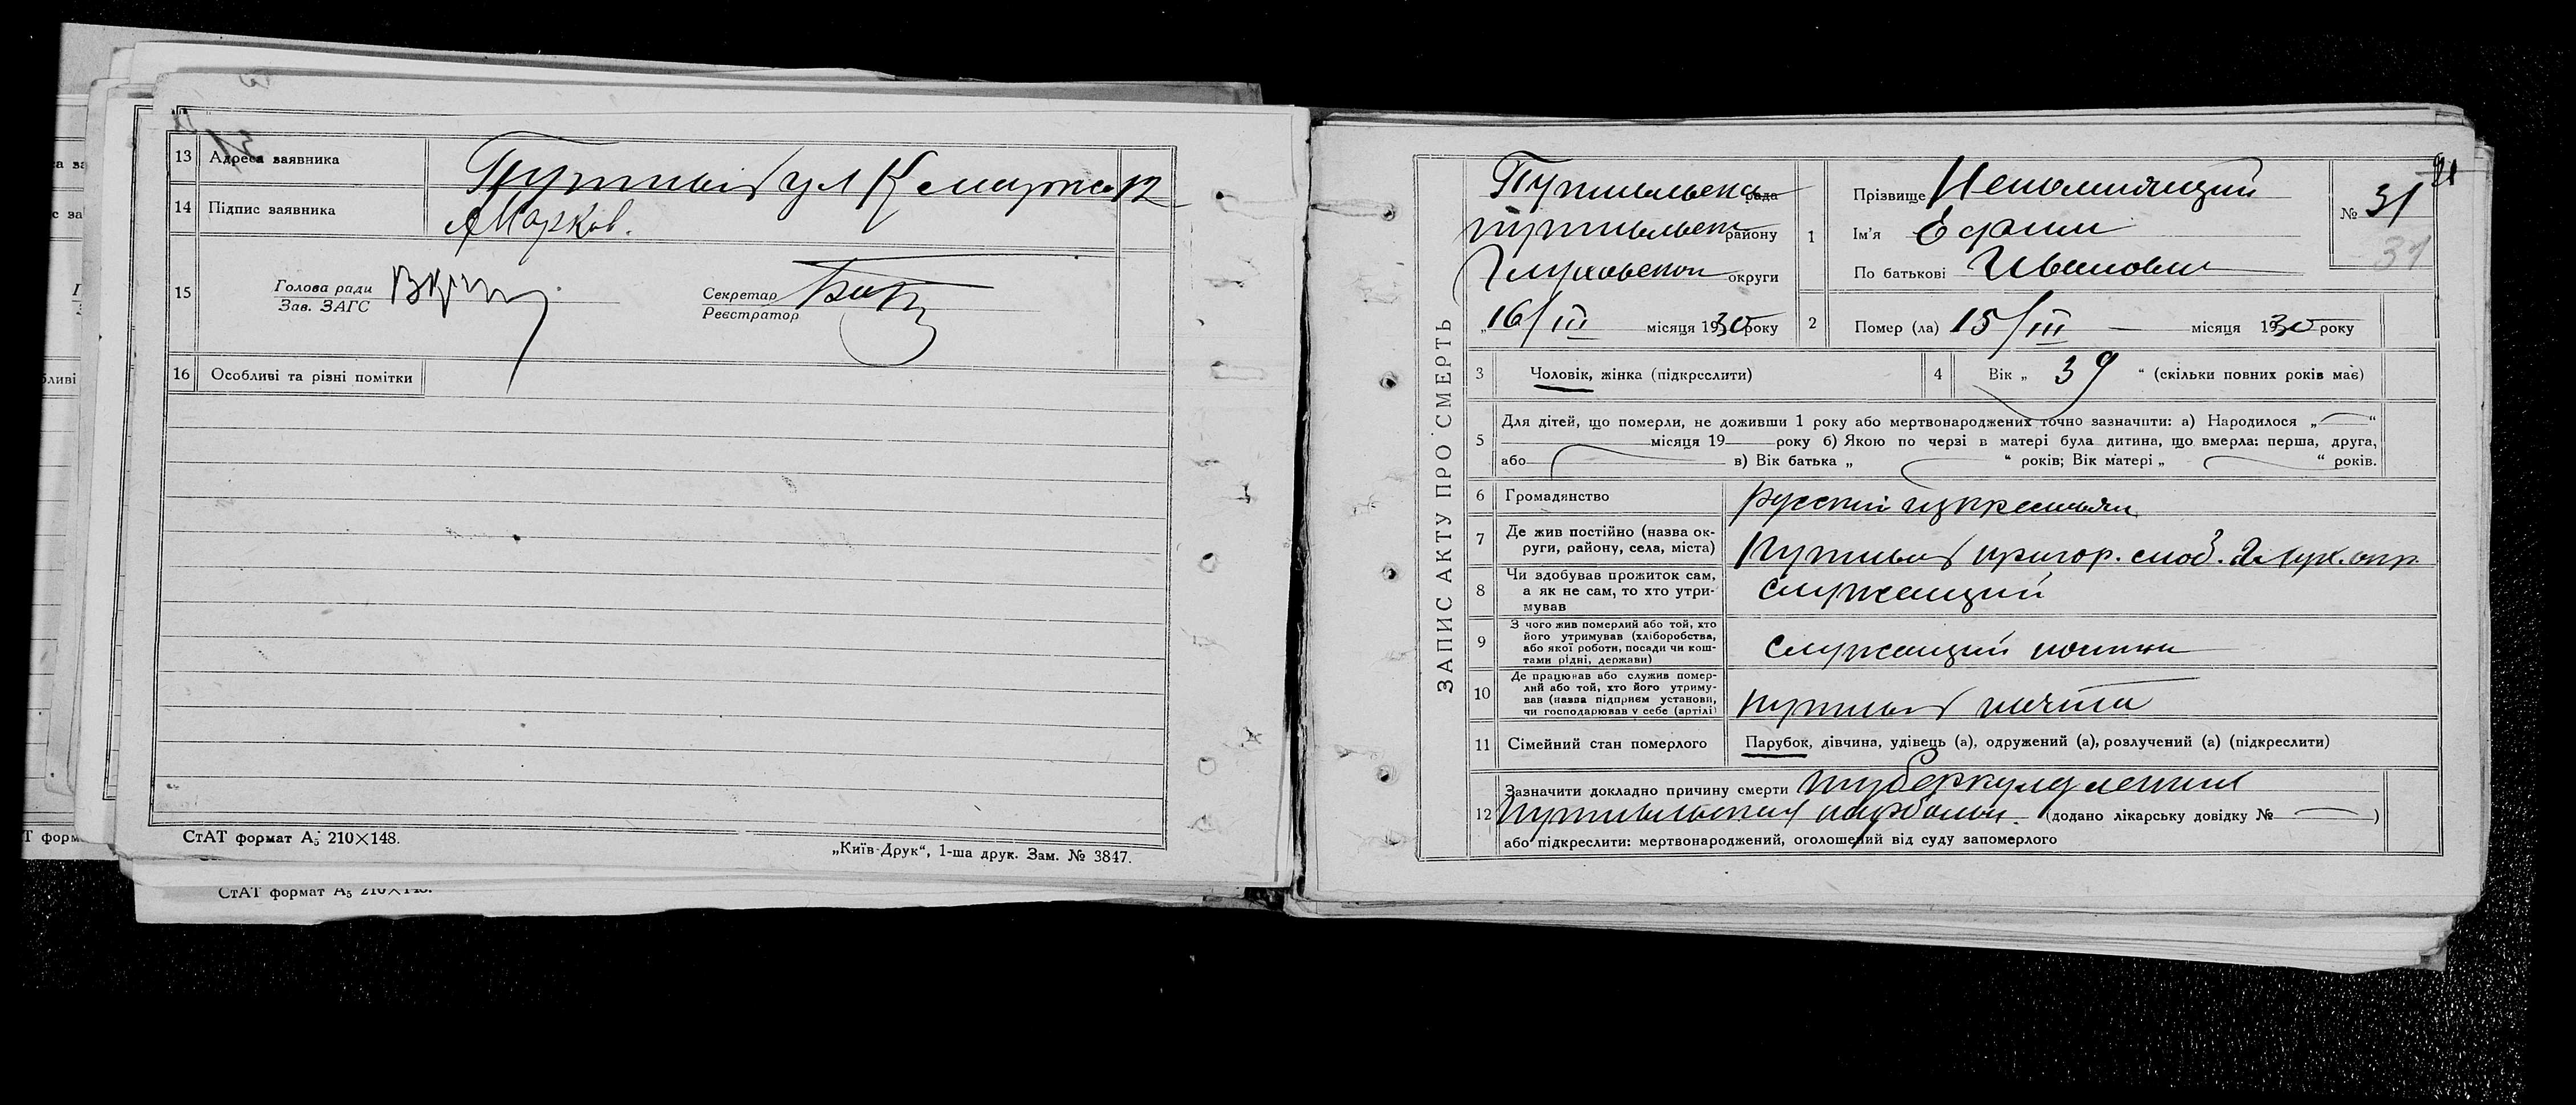 13 Адреса заявника Путивль ул К Маркса 12
14 Підпис заявника АМарков.
15 Голова ради
Зав. ЗАГС
Секретар
Реєстратор
16 Особливі та різні помітки
СтАТ формат А5 210×148.
„Київ-Друк“, 1-ша друк. Зам. № 3847.
СтАТ формат А5 210×148.
ЗАПИС АКТУ ПРО СМЕРТЬ
Путивльска рада
путивльск району
Глуховской округи
„16/III місяця 1930 року
1 Прізвище Непомнящий
Ім'я Ефим
По батькові Иванович
№ 31
31
2 Помер (ла) 15/III — місяця 1930 року
3 Чоловік, жінка (підкреслити)
4 Вік „ 39 “ (скільки повних років має)
5 Для дітей, що померли, не доживши 1 року або мертвонароджених точно зазначити: а) Народилося „ “
місяця 19 року б) Якою по черзі в матері була дитина, що вмерла: перша, друга,
або в) Вік батька „ “ років; Вік матері „ “ років.
6 Громадянство русский из крестьян
7 Де жив постійно (назва ок-
руги, району, села, міста) Путивль пригор. слоб. Глух. окр.
8 Чи здобував прожиток сам,
а як не сам, то хто утри-
мував служащий
9 З чого жив померлий або той, хто
його утримував (хліборобства,
або якої роботи, посади чи кош-
тами рідні, держави) служащий почты
10 Де працював або служив помер-
лий або той, хто його утриму-
вав (назва підприєм установи,
чи господарював у себе (артілі) путивль почта
11 Сімейний стан померлого Парубок, дівчина, удівець (а), одружений (а), розлучений (а) (підкреслити)
12 Зазначити докладно причину смерти туберкулез легких
Путивльская (додано лікарську довідку № — )
або підкреслити: мертвонароджений, оголошений від суду запомерлого